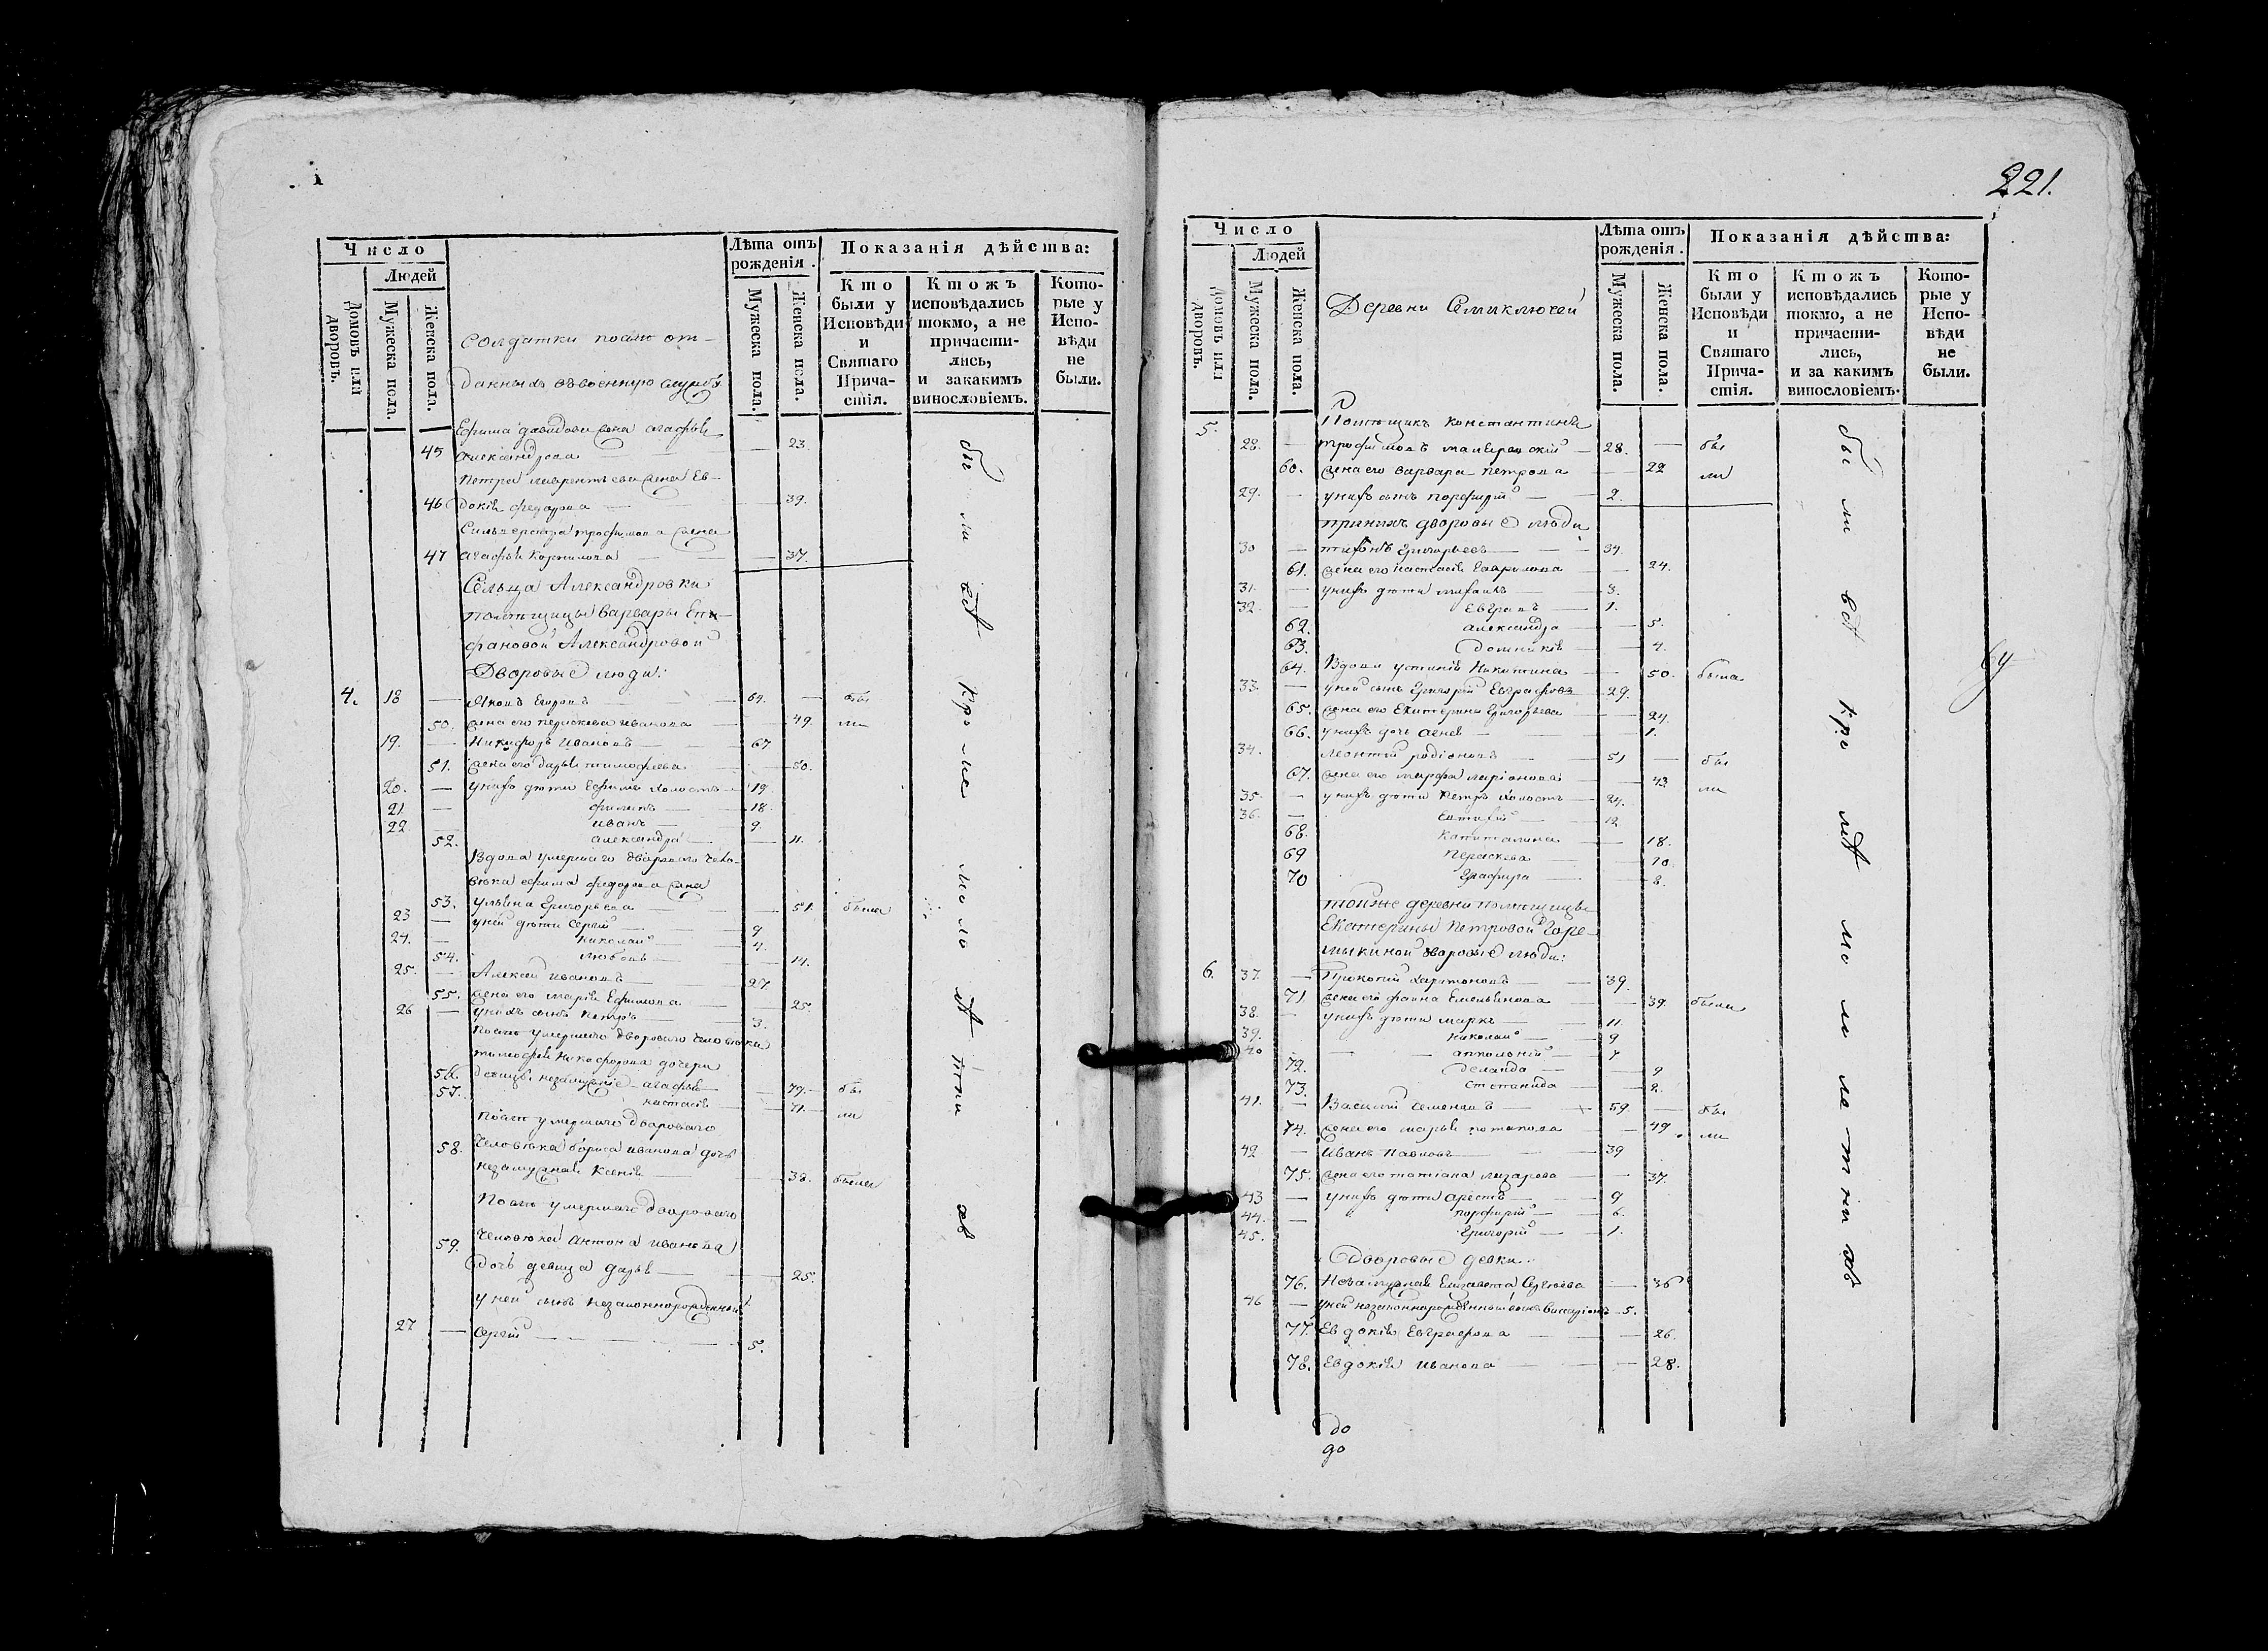 Число
Людей
Домовъ или дворовъ.
Мужеска пола.
Женска пола.
Солдатки послѣ от-
данныхъ въ военную службу
Лѣта отъ рожденія.
Мужеска пола.
Женска пола.
Показанія дѣйства:
Кто были у Исповѣди и Святаго Прича-стія.
Ктожъ исповѣдались токмо, а не причасти-лись, и закакимъ винословіемъ.
Кото-рые у Испо-вѣди не были.
Ефима давидова жена агафья
45 александрова — — 23.
Петра лаврентьева жена Ев-
46 докія федорова — — 39.
Сильвестра трофимова жена
47 агафья Корнилова — — 37.
Сельца Александровки
помѣщицы Варвары Епи-
фановой Александровой
Дворовые люди:
4. 18 — Яковъ Егоровъ — 64. — бы
50. жена его параскева иванова — 49. ли
19. — Никифоръ Ивановъ — 67
51. жена его дарья тимофеева — 50.
20. — унихъ дѣти Ефимъ холостъ — 19.
21 — филипъ — 18.
22. — иванъ — 9.
52. александра — 11.
Вдова умершаго двороваго чело-
вѣка ефима федорова жена
53. Ульяна Григорьева — — 51. была
23 — уней дѣти Сергій — 9
24. — николай — 4.
54. любовь — 14.
25. — Алексей ивановъ — 27.
55. жена его марія Ефимова — 25.
26 — унихъ сынъ петръ — 3.
Послѣ умершаго двороваго человѣка
тимофея Никифорова дочери
56. девицы незамужніе агафья — 79. бы
57. настасія — 71. ли
Послѣ умершаго двороваго
58. человѣка бориса иванова дочь
незамужная Ксенія — 38. была
Послѣ умершаго двороваго
59. человѣка антона иванова
дочь девица дарья — 25.
уней сынъ незаконнорожденный
27 — Сергій — 5.
бы ли всѣ кро ме ма ло лѣ тни хъ
221.
Число
Людей
Домовъ или дворовъ.
Мужеска пола.
Женска пола.
Деревни Семиключей
Лѣта отъ рожденія.
Мужеска пола.
Женска пола.
Показанія дѣйства:
Кто были у Исповѣди и Святаго Прича-стія.
Ктожъ исповѣдались токмо, а не причасти-лись, и за какимъ винословіемъ.
Кото-рые у Испо-вѣди не были.
5. Помѣщикъ константинъ
28. — трофимовъ — 28. — бы
60. жена его варвара петрова — 22 ли
29. — унихъ сынъ порфирій — 2.
при нихъ дворовые люди
30 — Григорьевъ — 34.
61. жена его настасія Гаврилова — 24.
31. — унихъ дѣти михаилъ — 3.
32. — Евграфъ — 1.
62. александра — 5.
63. домникія — 4.
64. Вдова устинія Никитина — 50. была
33. — уней сынъ Григорій Евграфовъ — 29.
65. жена его Екатерина Григорьева — 24.
66. унихъ дочь агнея — 1.
34. — леонтій родіоновъ — 51 — бы
67. жена его марфа ларіонова — 43 ли
35. — унихъ дѣти петръ холостъ — 24.
36. — — 12
68. Капиталина — 18.
69 параскева — 10.
70 Глафира — 8.
тойже деревни помѣщицы
Екатерины Петровой Горе-
мыкиной дворовые люди:
6. 37. — Прокопій Харитоновъ — 39.
71. жена его фаина Емельянова — 39. были
38. — унихъ дѣти маркъ — 11.
39. николай — 9
40 — апполоній — 7
72. — 9
73. степанида — 2.
41. — Василій Семеновъ — 59. — бы
74. жена его марья потапова — 49. ли
42 — Иванъ Павловъ — 39
75. жена его татіана лазарева — 37.
43 — унихъ дѣти орестъ — 9
44. — порфирій — 6.
45. Григорій — 1.
Дворовые девки:
76. Незамужная Елизавета Сергѣева — 36
46 — уней незаконнорожденный сынъ Виссаріонъ — 5.
77. Евдокія Евграфова — 26.
78. Евдокія иванова — 28.
бы ли всѣ кро мѣ ма ло лѣ тни хъ
до
до